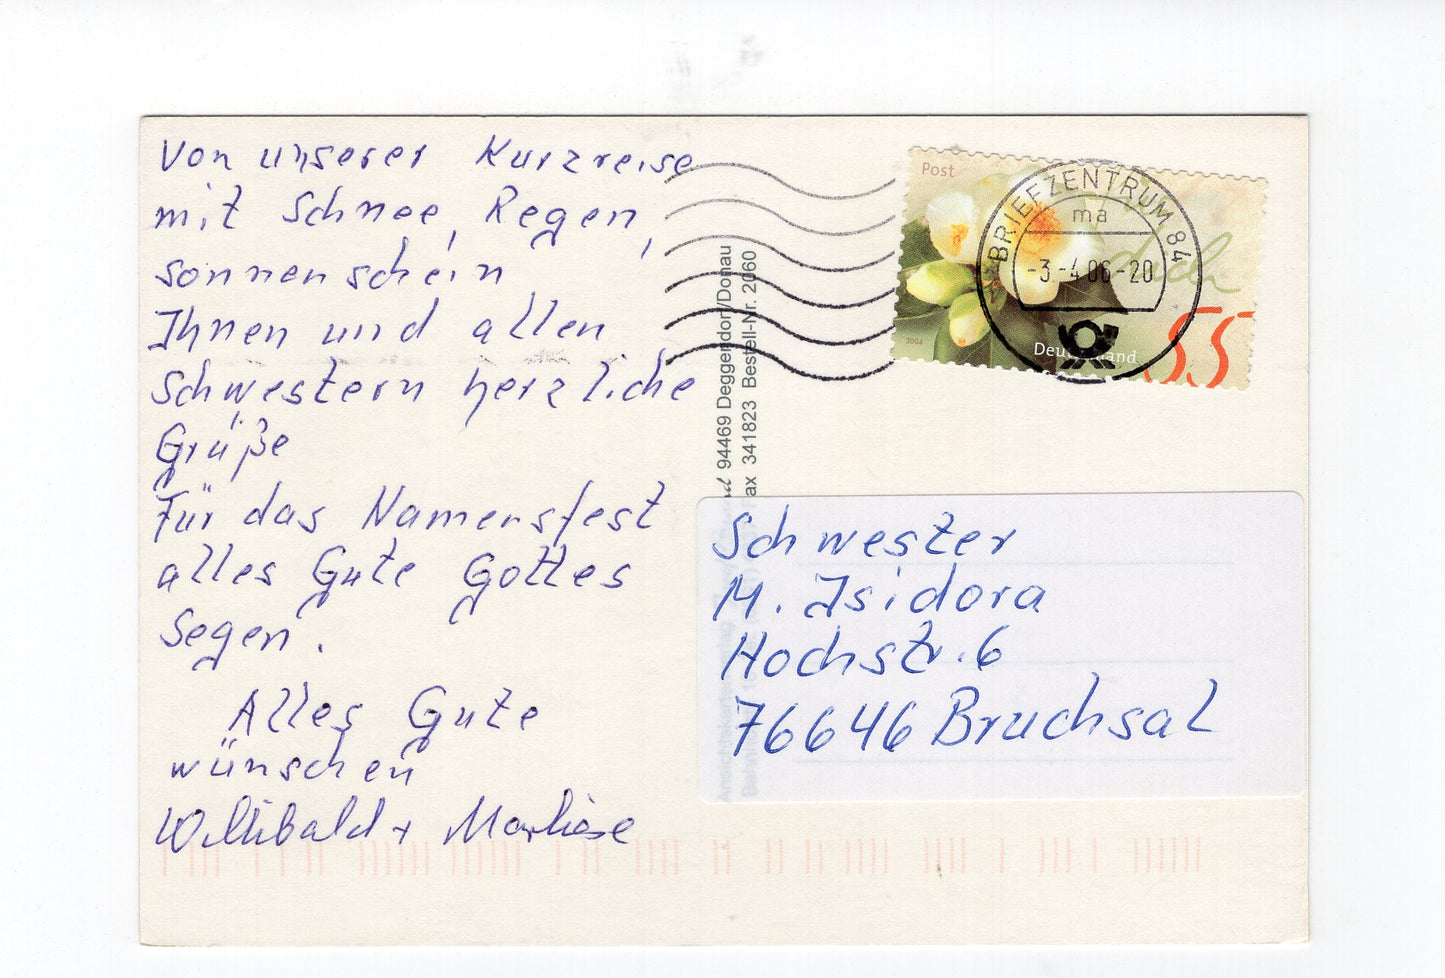 Von unserer Kurzreise
mit Schnee, Regen,
Sonnenschein
Ihnen und allen
Schwestern herzliche
Grüße
Für das Namensfest
alles Gute Gottes
Segen.
Alles Gute
wünschen
Willibald + Marliese
94469 Deggendorf/Donau
341823 Bestell-Nr. 2060
Post
2004
Deutschland
55
BRIEFZENTRUM 84
ma
-3.-4.06-20
Schwester
M. Isidora
Hochstr. 6
76646 Bruchsal